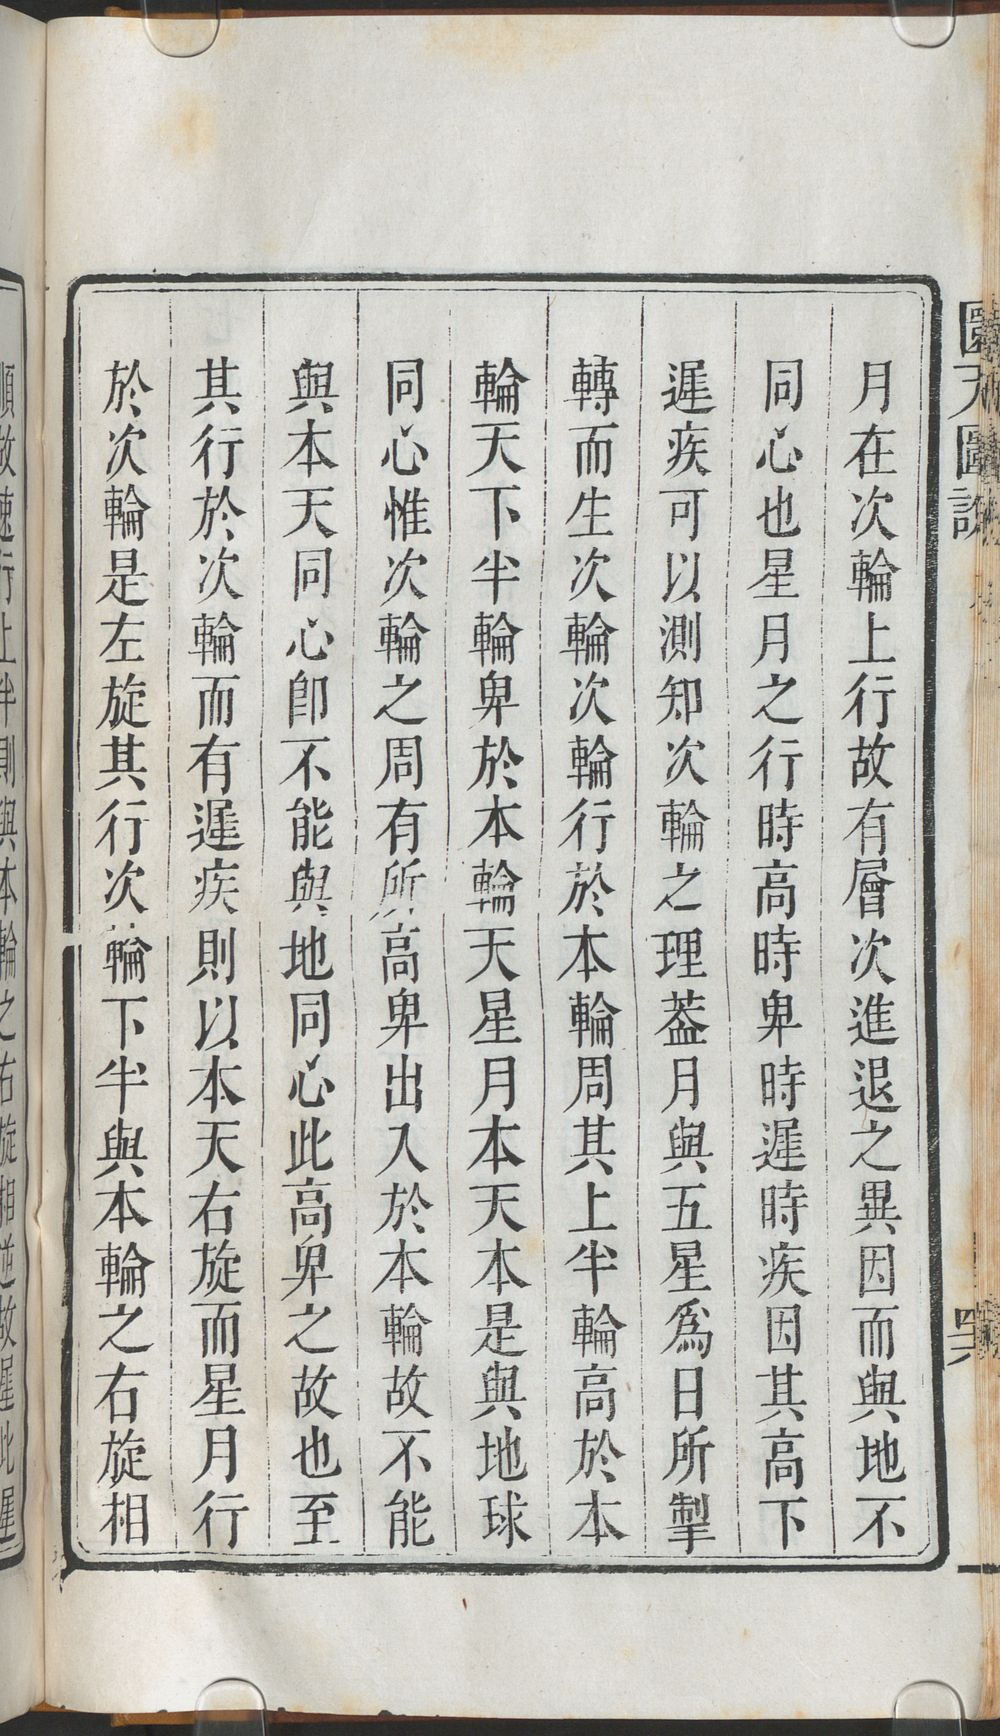 月在次輪上行故有層次進退之異因而與地不
同心也星月之行時高時卑時遲時疾因其高下
遲疾可以測知次輪之理葢月與五星爲日所掣
轉而生次輪次輪行於本輪周其上半輪高於本
輪天下半輪卑於本輪天星月本天本是與地球
同心惟次輪之周有所高卑出入於本輪故不能
與本天同心卽不能與地同心此高卑之故也至
其行於次輪而有遲疾則以本天右旋而星月行
於次輪是左旋其行次輪下半與本輪之右旋相
順故速行上半則與本輪之右旋相逆故遲此遲
圜天圖說